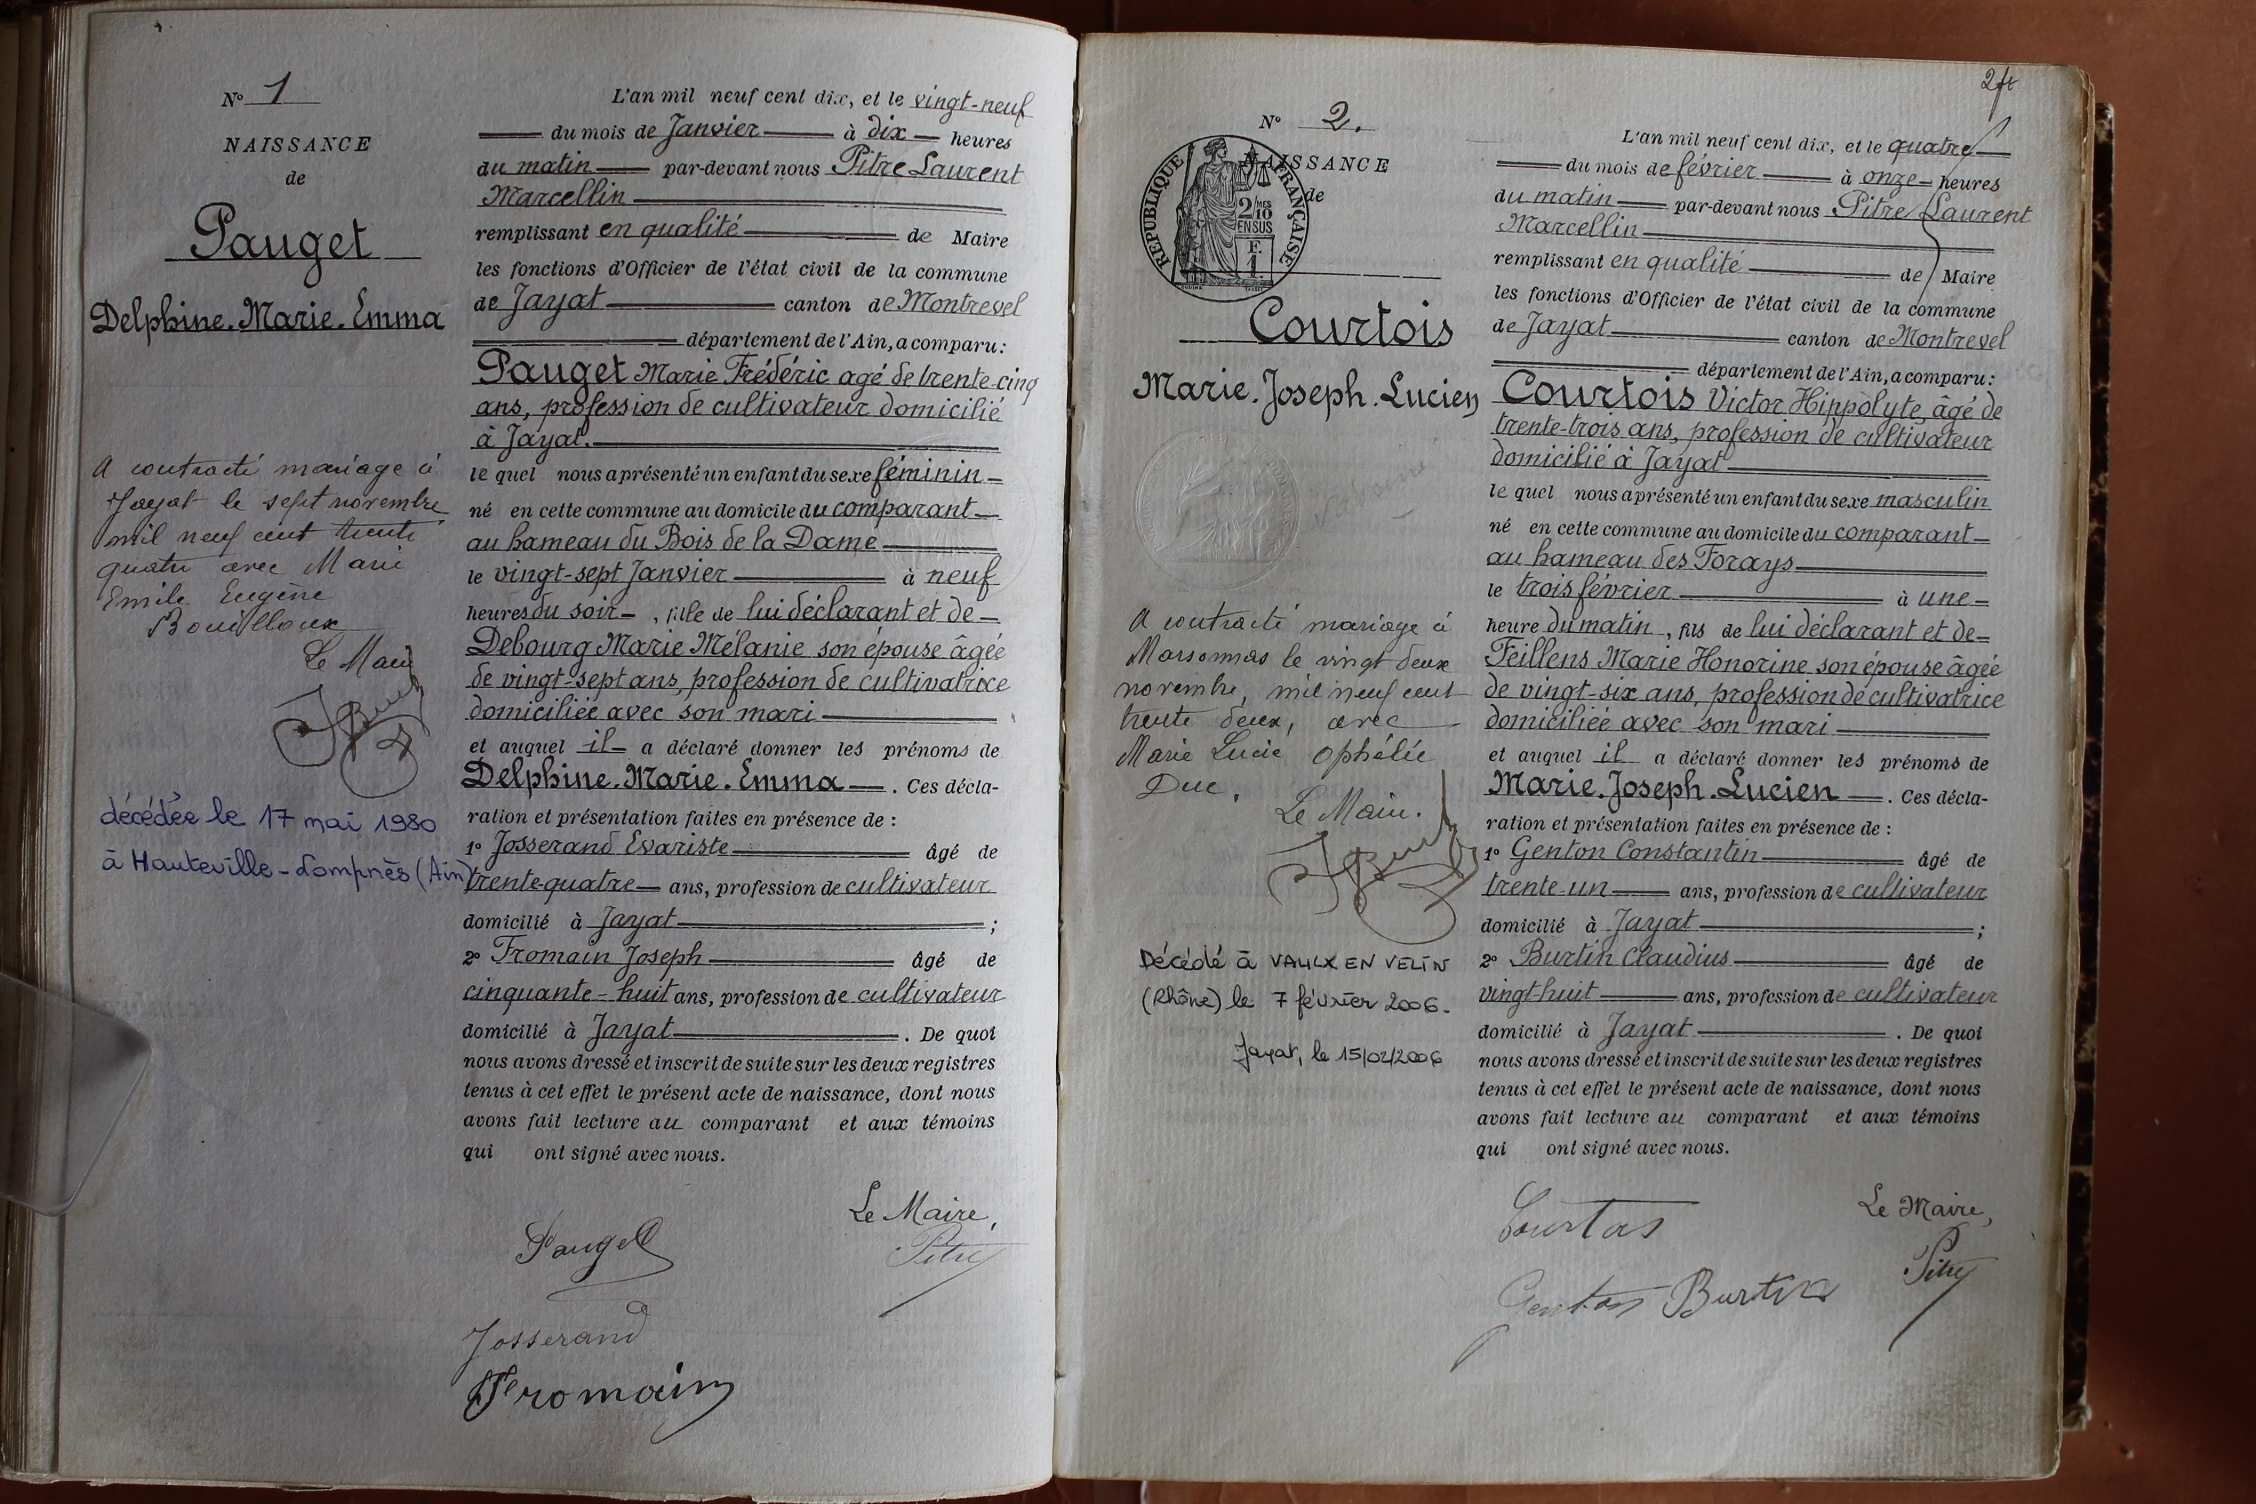 N° 1
NAISSANCE
de
Pauget
Delphine. Marie. Emma
A contracté mariage à
Jayat le sept novembre
mil neuf cent trente
quatre avec Marie
Emile Eugène
Bouilloux
Le Maire
décédée le 17 mai 1980
à Hauteville-Lompnès (Ain)
L'an mil neuf cent dix, et le vingt-neuf
du mois de Janvier à dix heures
du matin par-devant nous Pitre Laurent
Marcellin
remplissant en qualité de Maire
les fonctions d'Officier de l'état civil de la commune
de Jayat canton de Montrevel
département de l'Ain, a comparu:
Pauget Marie Frédéric agé de trente-cinq
ans, profession de cultivateur domicilié
à Jayat.
le quel nous a présenté un enfant du sexe féminin
né en cette commune au domicile du comparant
au hameau du Bois de la Dame
le vingt-sept Janvier à neuf
heures du soir, fille de lui déclarant et de
Debourg Marie Mélanie son épouse âgée
de vingt-sept ans, profession de cultivatrice
domiciliée avec son mari
et auquel il a déclaré donner les prénoms de
Delphine. Marie. Emma. Ces décla-
ration et présentation faites en présence de :
1° Josserand Evariste âgé de
trente-quatre ans, profession de cultivateur
domicilié à Jayat ;
2° Fromain Joseph âgé de
cinquante-huit ans, profession de cultivateur
domicilié à Jayat. De quoi
nous avons dressé et inscrit de suite sur les deux registres
tenus à cet effet le présent acte de naissance, dont nous
avons fait lecture au comparant et aux témoins
qui ont signé avec nous.
Le Maire,
Pauget
Pitre
Josserand
Fromain
N° 2.
NAISSANCE
de
REPUBLIQUE FRANÇAISE
2/10 MES
EN SUS
Courtois
Marie. Joseph. Lucien
A contracté mariage à
Marsonnas le vingt deux
novembre, mil neuf cent
trente deux, avec
Marie Lucie Ophélie
Duc.
Le Maire.
Décédé à VAULX EN VELIN
(Rhône) le 7 février 2006.
Jayat, le 15/02/2006
L'an mil neuf cent dix, et le quatre
du mois de février à onze heures
du matin par-devant nous Pitre Laurent
Marcellin
remplissant en qualité de Maire
les fonctions d'Officier de l'état civil de la commune
de Jayat canton de Montrevel
département de l'Ain, a comparu:
Courtois Victor Hippolyte, âgé de
trente-trois ans, profession de cultivateur
domicilié à Jayat
le quel nous a présenté un enfant du sexe masculin
né en cette commune au domicile du comparant
au hameau des Forays
le trois février à une
heure du matin, fils de lui déclarant et de
Feillens Marie Honorine son épouse âgée
de vingt-six ans, profession de cultivatrice
domiciliée avec son mari
et auquel il a déclaré donner les prénoms de
Marie. Joseph. Lucien. Ces décla-
ration et présentation faites en présence de :
1° Genton Constantin âgé de
trente-un ans, profession de cultivateur
domicilié à Jayat ;
2° Burtin Claudius âgé de
vingt-huit ans, profession de cultivateur
domicilié à Jayat. De quoi
nous avons dressé et inscrit de suite sur les deux registres
tenus à cet effet le présent acte de naissance, dont nous
avons fait lecture au comparant et aux témoins
qui ont signé avec nous.
Courtois
Le Maire,
Pitre
Genton Burtin